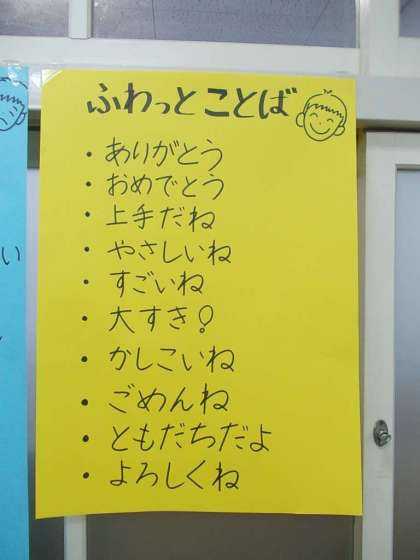 ふわっと ことば
・ありがとう
・おめでとう
・上手だね
・やさしいね
・すごいね
・大すき!
・かしこいね
・ごめんね
・ともだちだよ
・よろしくね
い